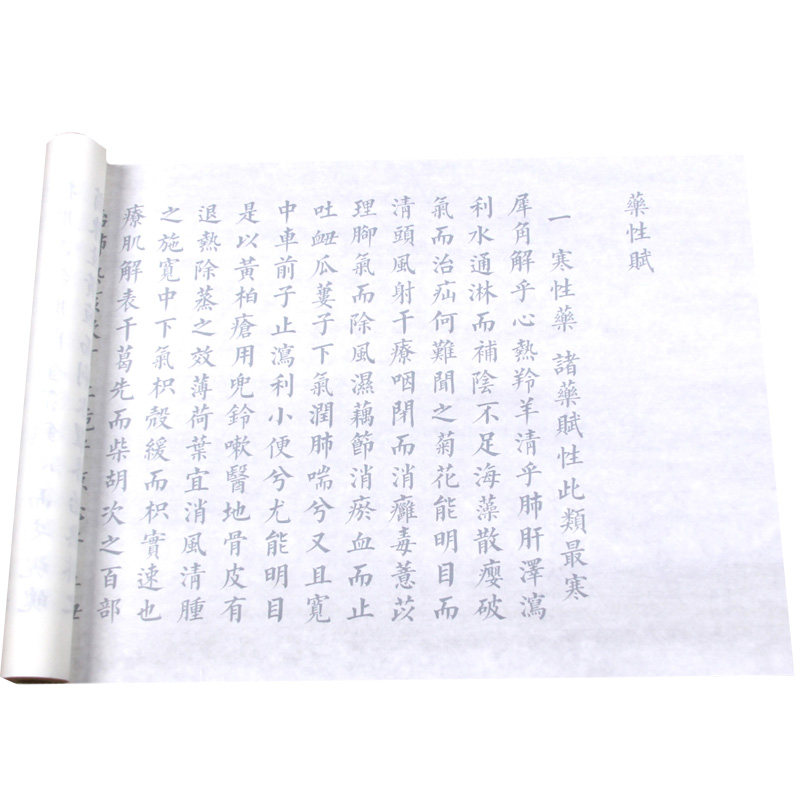 藥性賦
一 寒性藥 諸藥賦性此類最寒
犀角解乎心熱羚羊清乎肺肝澤瀉
利水通淋而補陰不足海藻散癭破
氣而治疝何難聞之菊花能明目而
清頭風射干療咽閉而消癰毒薏苡
理腳氣而除風濕藕節消瘀血而止
吐衄瓜蔞子下氣潤肺喘兮又且寬
中車前子止瀉利小便兮尤能明目
是以黃柏瘡用兜鈴嗽醫地骨皮有
退熱除蒸之效薄荷葉宜消風清腫
之施寬中下氣枳殼緩而枳實速也
療肌解表干葛先而柴胡次之百部